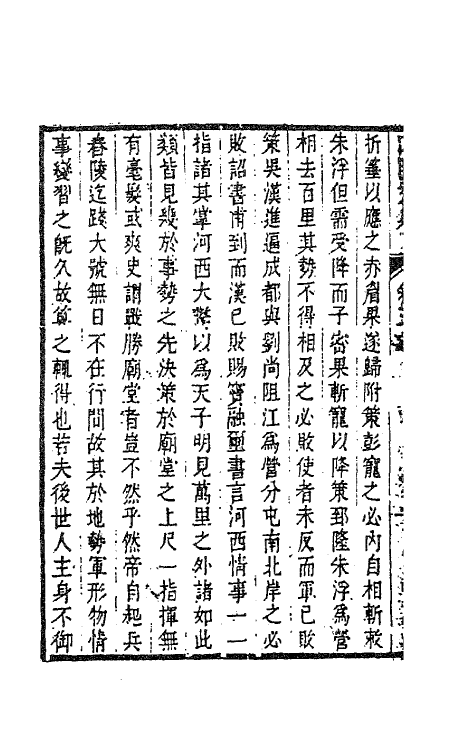 折箠以應之赤眉果遂歸附策彭寵之必內自相斬敕
朱浮但需受降而子密果斬寵以降策鄧隆朱浮為營
相去百里其勢不得相及之必敗使者未反而軍已敗
策吳漢進逼成都與劉尚阻江為營分屯南北岸之必
敗詔書甫到而漢已敗賜竇融璽書言河西情事一一
指諸其掌河西大驚以為天子明見萬里之外諸如此
類皆見幾於事勢之先決策於廟堂之上尺一指揮無
有毫髮或爽史謂戰勝廟堂者豈不然乎然帝自起兵
舂陵迄踐大號無日不在行間故其於地勢軍形物情
事變習之既久故算之輒得也若夫後世人主身不御